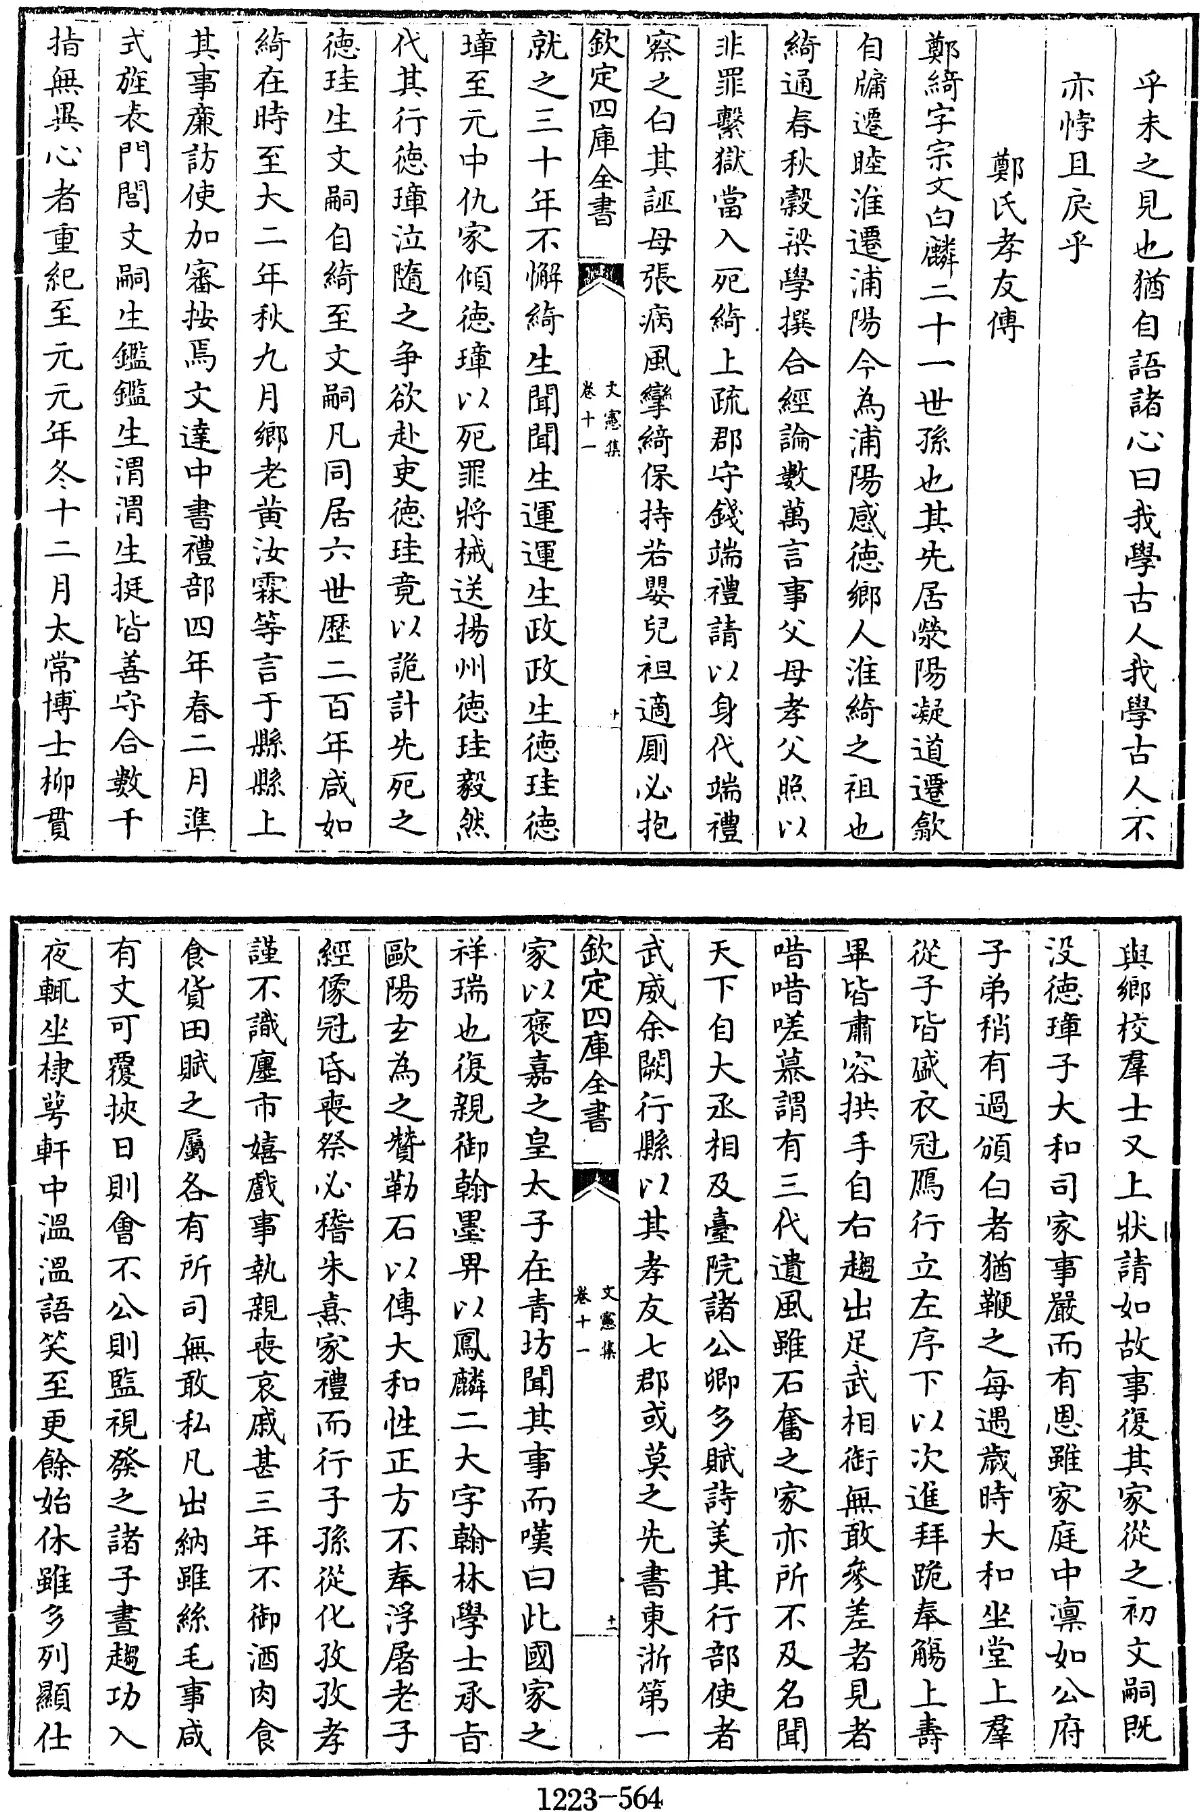 乎未之見也猶自語諸心曰我學古人我學古人不
亦悖且戾乎
鄭氏孝友傳
鄭綺字宗文白麟二十一世孫也其先居滎陽凝道遷歙
自牗遷睦淮遷浦陽今為浦陽感徳鄉人淮綺之祖也
綺通春秋糓梁學撰合經論數萬言事父母孝父照以
非罪繫獄當入死綺上疏郡守錢端禮請以身代端禮
察之白其誣母張病風攣綺保持若嬰兒袒適厠必抱
欽定四庫全書
文憲集
卷十一
十一
就之三十年不懈綺生聞聞生運運生政政生徳珪徳
璋至元中仇家傾徳璋以死罪將械送揚州徳珪毅然
代其行徳璋泣隨之争欲赴吏徳珪竟以詭計先死之
徳珪生文嗣自綺至文嗣凡同居六世歴二百年咸如
綺在時至大二年秋九月鄉老黄汝霖等言于縣縣上
其事廉訪使加審按焉文達中書禮部四年春二月準
式旌表門閭文嗣生鑑鑑生渭渭生挺皆善守合數千
指無異心者重紀至元元年冬十二月太常博士柳貫
與鄉校羣士又上狀請如故事復其家從之初文嗣既
没徳璋子大和司家事嚴而有恩雖家庭中凛如公府
子弟稍有過頒白者猶鞭之每遇歲時大和坐堂上羣
從子皆盛衣冠鴈行立左序下以次進拜跪奉觴上壽
畢皆肅容拱手自右趨出足武相銜無敢參差者見者
唶唶嗟慕謂有三代遺風雖石奮之家亦所不及名聞
天下自大丞相及臺院諸公卿多賦詩美其行部使者
武威余闕行縣以其孝友七郡或莫之先書東浙第一
欽定四庫全書
文憲集
卷十一
十二
家以褒嘉之皇太子在青坊聞其事而嘆曰此國家之
祥瑞也復親御翰墨畀以鳳麟二大字翰林學士承㫖
歐陽玄為之贊勒石以傳大和性正方不奉浮屠老子
經像冠昏喪祭必稽朱熹家禮而行子孫從化孜孜孝
謹不識廛市嬉戲事執親喪哀戚甚三年不御酒肉食
食貨田賦之屬各有所司無敢私凡出納雖絲毛事咸
有文可覆挾日則會不公則監視發之諸子晝趨功入
夜輒坐棣萼軒中溫溫語笑至更餘始休雖多列顯仕
1223-564